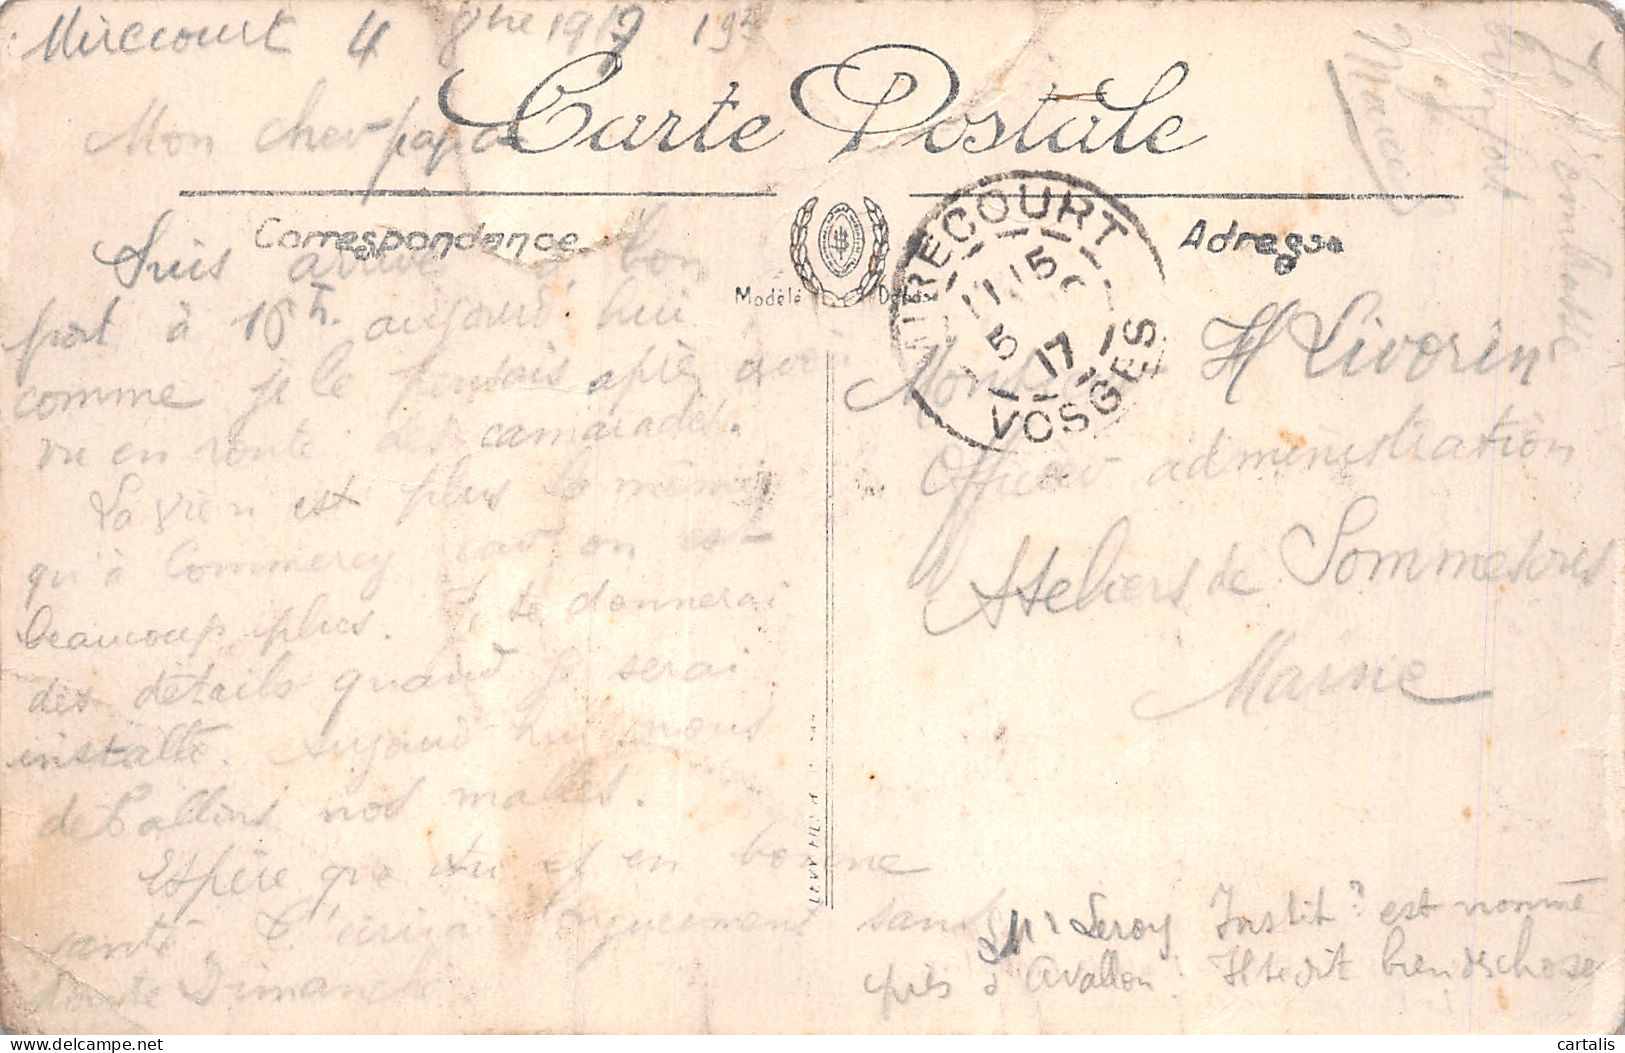 Mirecourt 4 8bre 1917 19h
Mon cher papa
Carte Postale
Correspondance
Adresse
Modèle Dépo
MIRECOURT
11 15
5 17
VOSGES
Suis arrivé à bon
port à 18h. aujourd'hui
comme je le pensais après avoir
vu en route des camarades.
La vie n'est plus la même
qu'à Commercy car on est
beaucoup plus. Je te donnerai
des détails quand je serai
installé. Aujourd'hui nous
déballons nos malles.
Espère que tu es en bonne
santé. T'écrirai longuement sans
doute Dimanche.
Monsieur H Livorin
Officier administration
Ateliers de Sommesous
Marne
Mr Leroy Instit? est nommé
près d'Avallon. Il te dit bien des choses
Je t'embrasse
bien fort
Marcel
LEVY FILS